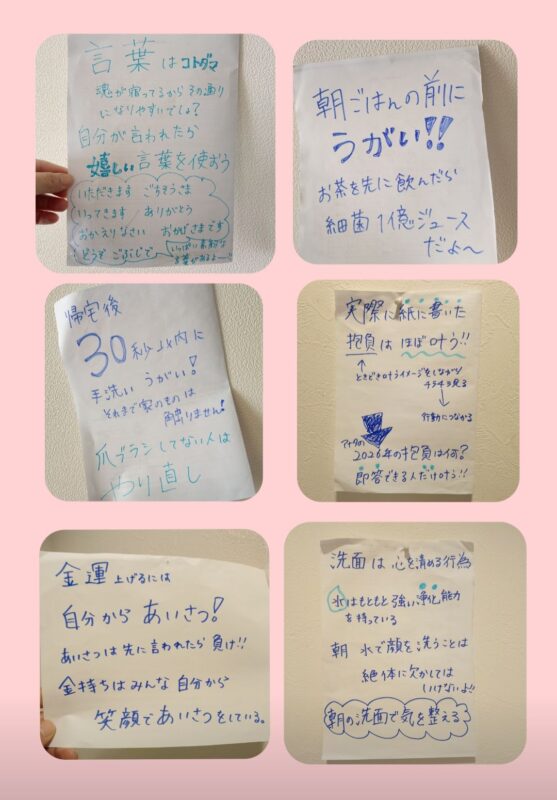 言葉はコトダマ
魂が宿ってるからその通り
になりやすいでしょ?
自分が言われたら
嬉しい言葉を使おう
いただきます ごちそうさま
いってきます ありがとう
おかえりなさい おかげさまです
どうぞ ごぶじで
いっぱい素敵な
言葉があるよー
朝ごはんの前に
うがい!!
お茶を先に飲んだら
細菌1億ジュース
だよ〜
帰宅後
30秒以内に
手洗い うがい!
それまで家のものは
触りません!
爪ブラシしてない人は
やり直し
実際に紙に書いた
抱負はほぼ叶う!!
ときどき叶うイメージをしながら
チラチラ見る
行動につながる
アナタの
2026年の抱負は何?
即答できる人だけ叶う!!
金運 上げるには
自分から あいさつ!
あいさつは先に言われたら負け!!
金持ちはみんな自分から
笑顔であいさつをしている。
洗面は心を清める行為
水はもともと強い浄化能力
を持っている
朝 水で顔を洗うことは
絶体に欠かしては
いけないよ!!
朝の洗面で気を整える